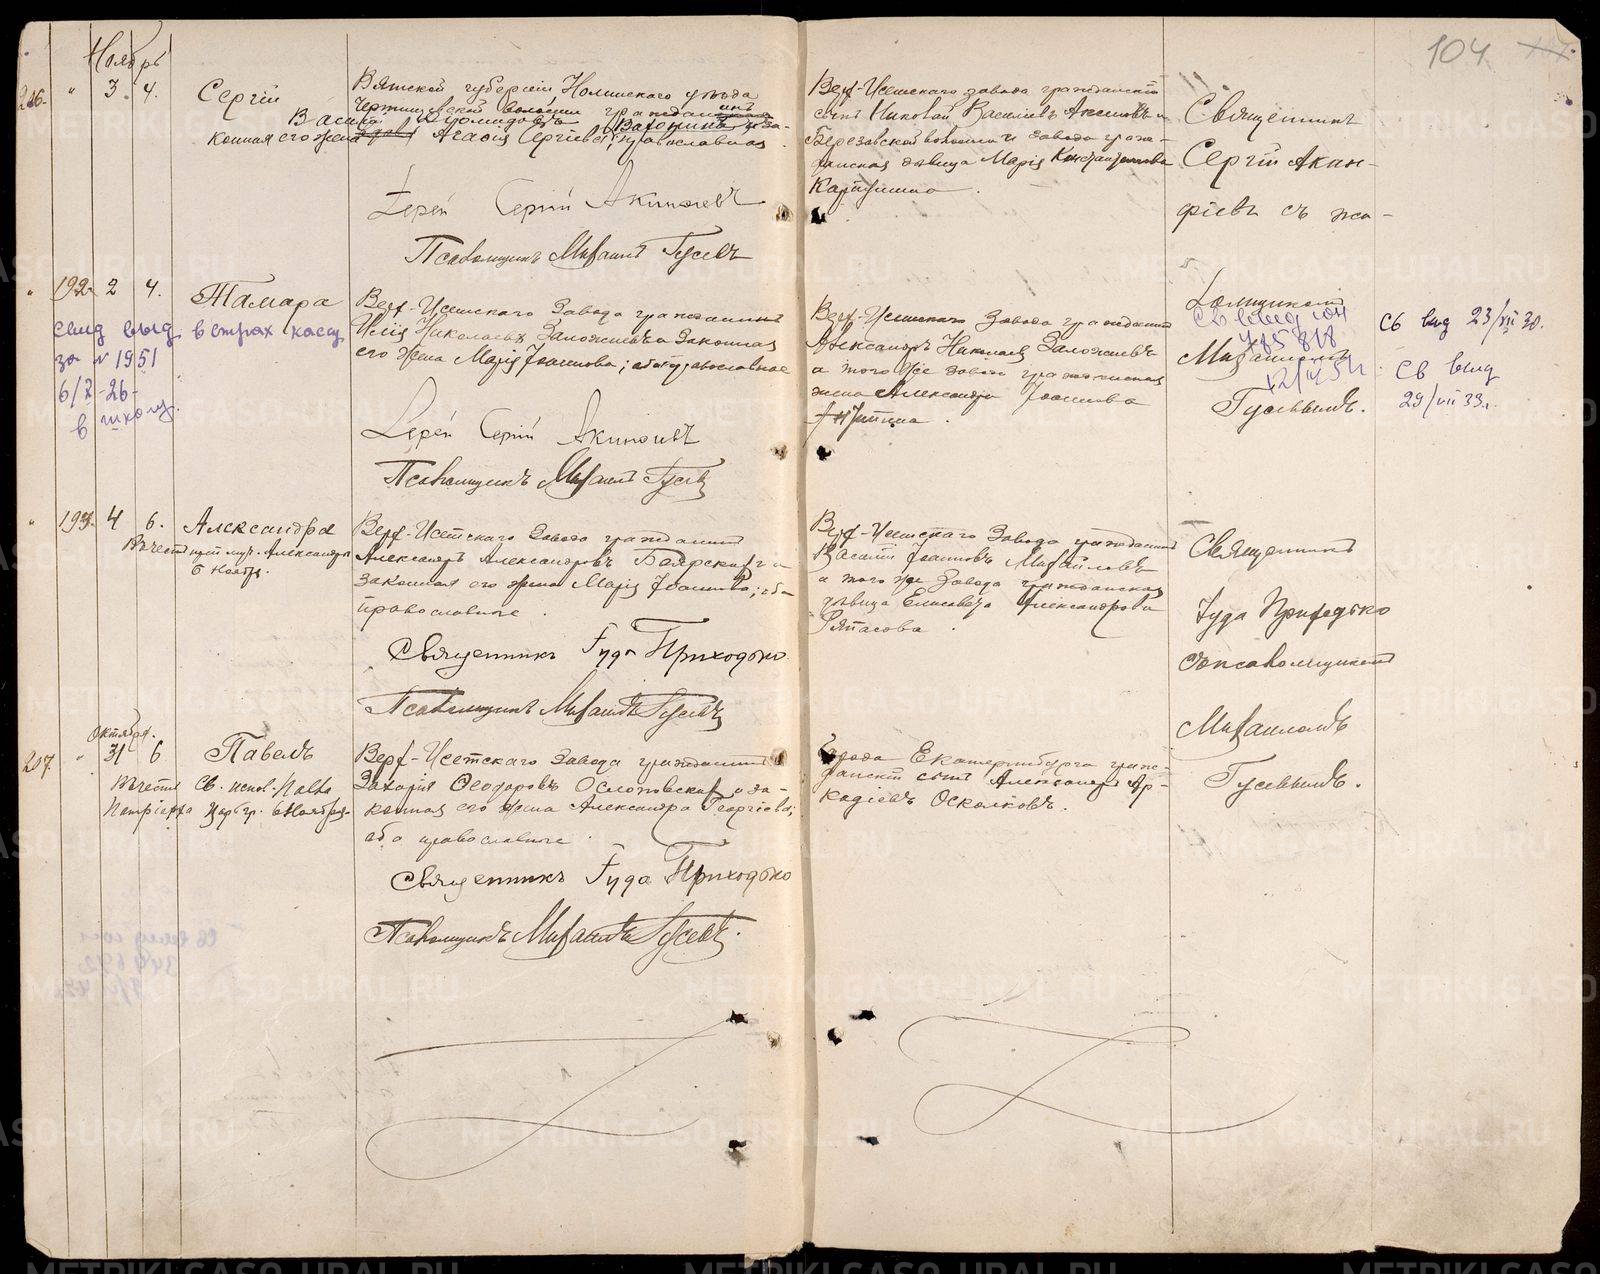 104
Ноябрь
206. " 3. 4. Сергій
Вятской губерніи Нолинскаго уѣзда
волости гражданинъ
Василій Діомидовъ Вагонинъ и за-
конная его жена Агафія Сергіевна, православная
Іерей Сергій Акинфіевъ
Псаломщикъ Михаилъ Гусевъ
Верх-Исетскаго завода гражданскій
сынъ Николай Василіевъ Аксеновъ и
Березовской волости и завода граж-
данская дѣвица Марія Константинова
Карпушина.
Священникъ
Сергій Акин-
фіевъ съ пса-
" 192 2 4. Тамара
свид выд. в страх кассу
за № 1951
6/X-26-
в школу.
Верх-Исетскаго Завода гражданинъ
Илія Николаевъ Заложневъ и Законная
его жена Марія Іоаннова; оба православные
Іерей Сергій Акинфіевъ
Псаломщикъ Михаилъ Гусевъ
Верх-Исетскаго Завода гражданинъ
Александръ Николаевъ Заложневъ
и того же завода гражданская
жена Александра Іоаннова
ломщикомъ
Св выд
485818
Михаиломъ
12/
Гусевымъ.
Св выд 23/VII 30.
Св выд
29/VII 33г.
" 193. 4 6. Александра
Въ честь муч. Александры
6 Ноября.
Верх-Исетскаго Завода гражданинъ
Александръ Александровъ Боярскихъ и
законная его жена Марія Іоаннова; оба
православные.
Священникъ Іуда Приходько
Псаломщикъ Михаилъ Гусевъ
Верх-Исетскаго Завода гражданинъ
Василій Іоанновъ Михайловъ
и того же Завода гражданская
дѣвица Елисавета Александрова
Священникъ
Іуда Приходько
съ псаломщикомъ
Михаиломъ
Гусевымъ.
Октября.
207. " 31 6 Павелъ
Въ честь Св. испов. Павла
Патріарха Царьгр. 6 Ноября.
Верх-Исетскаго Завода гражданинъ
Захарія Ѳеодоровъ и за-
конная его жена Александра Георгіева;
оба православные.
Священникъ Іуда Приходько
Псаломщикъ Михаилъ Гусевъ.
Города Екатеринбурга граж-
данскій сынъ Александръ Ар-
кадіевъ Осколковъ.
METRIKI.GASO-URAL.RU